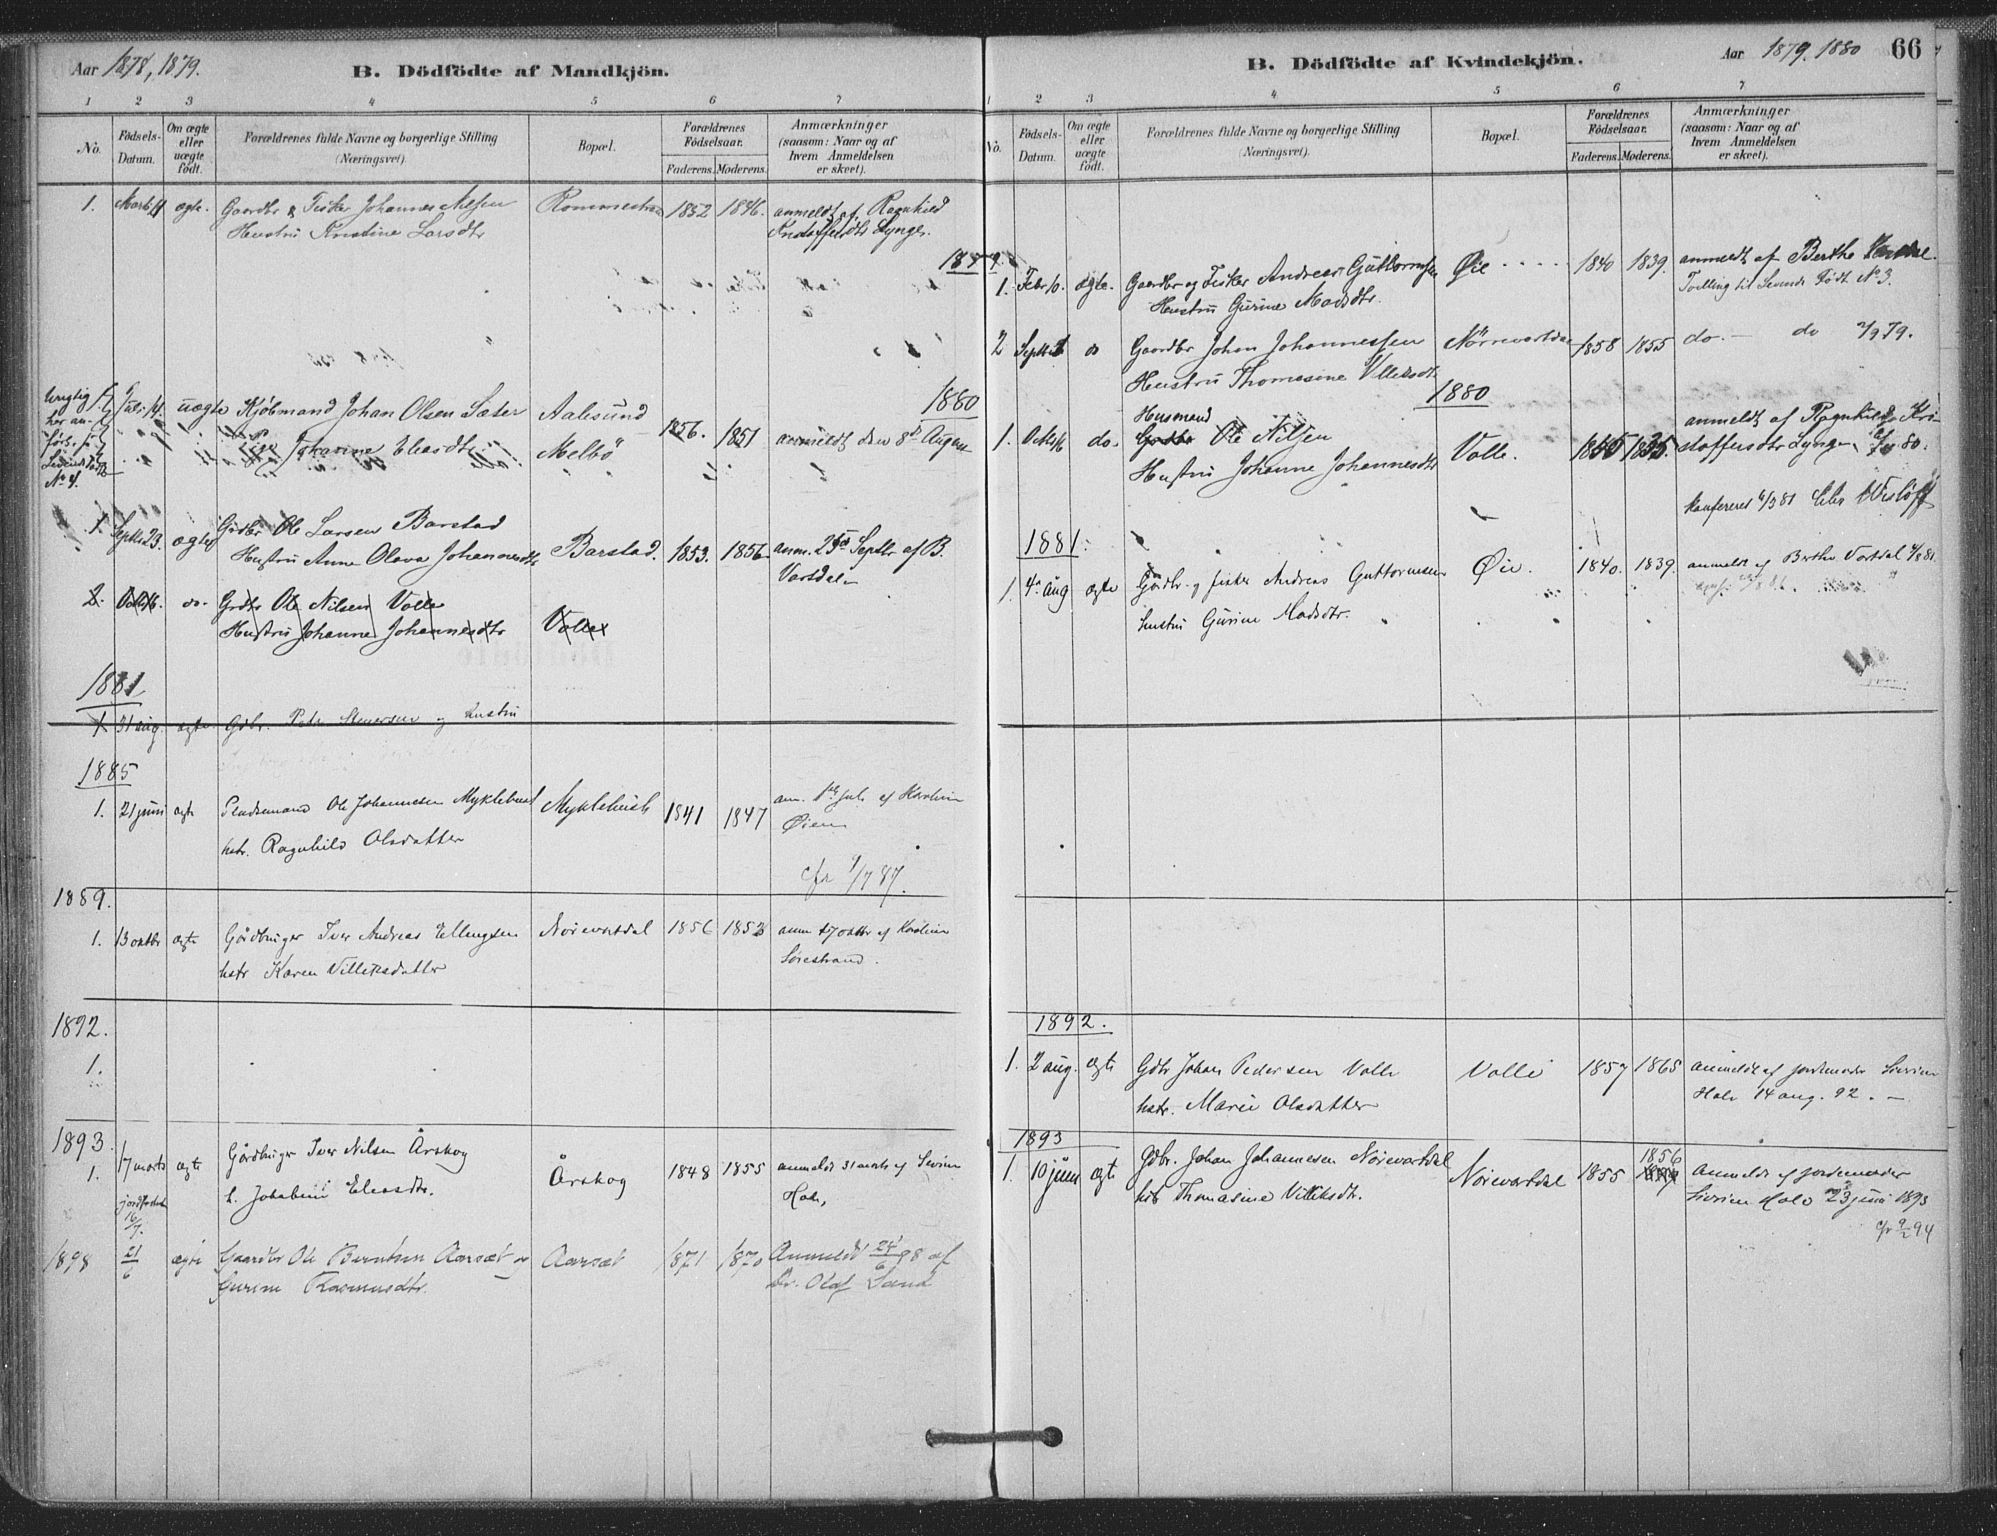 Aar 1878, 1879.
B. Dödfödte af Mandkjön.
1 2 3 4 5 6 7
No.
Födsels-Datum.
Om ægte eller uægte födt.
Forældrenes fulde Navne og borgerlige Stilling (Næringsvei).
Bopæl.
Forældrenes Födselsaar.
Faderens. Moderens.
Anmærkninger (saasom: Naar og af hvem Anmeldelsen er skeet).
1. ægte. Gaardbr & Fisker Johannes Nilsen 1852 1846. anmeldt af Ragnhild
Hustru Kristine Larsdtr Lynge.
1880
Juli 14. uægte Kjøbmand Johan Olsen Sæter Aalesund
Pige Johanne Eliasdtr. Melbö 1856. 1851 anmeldt den 8de August
No 4.
1. Septbr 23. ægte Grdbr Ole Larsen Barstad
Hustru Anne Olava Johannesdtr Barstad. 1853. 1856. anm. 25de Septbr af B.
Varsdal
2. do. Grdbr Ole Nilsen Volle
Hustru Johanne Johannesdtr Volle
1881
1 31 aug. ægte Gdbr. Peter Steuersen og hustru
1885
1. 21 juni ægte Ole Johannesen Myklebust Myklebust 1841 1847 anm. 1ste juli af Karoline
hstr. Ragnhild Olsdatter Øien
cfr 9/7 87.
1889.
1. 13 oktbr ægte Gårdbruger Iver Andreas Ellingsen Nörevartdal 1856 1853 anm 17 oktbr af Karoline
hstr Karen Villiksdatter Sörestrand.
1892.
1.
1893.
1. 17 marts ægte Gårdbruger Iver Nilsen Årskog Årskog 1848 1855 anmeldt 31 marts af Sivrine
h. Jokobine Eliasdtr. Hole,
jordfæstet
16/7.
1898 21/6 ægte Gaardbr Ole Berntsen Aarsæt og Aarsæt 1871 1870 Anmeldt 24/6 98 af
Gurine Rasmusdtr. Dr. Olaf Sand
B. Dödfödte af Kvindekjön.
Aar 1879. 1880 66
1 2 3 4 5 6 7
No.
Födsels-Datum.
Om ægte eller uægte födt.
Forældrenes fulde Navne og borgerlige Stilling (Næringsvei).
Bopæl.
Forældrenes Födselsaar.
Faderens. Moderens.
Anmærkninger (saasom: Naar og af hvem Anmeldelsen er skeet).
1879
1. Febr 10. ægte. Gaardbr og Fisker Andreas Guttormsen Øie 1840 1839. anmeldt af Berthe
Hustru Gurine Madsdtr. Tvilling til Levende Födt No 3.
2 do Gaardbr Johan Johannessen Nörrevartdal 1858 1855 do. do 2/9 79.
Hustru Thomasine Villiksdtr
1880
Husmand
1. do. Grdbr Ole Nilsen Volle. 1835. anmeldt af Ragnhild Kri-
Hustru Johanne Johannesdtr stoffersdtr Lynge
Konfereret
1881.
1. 4 aug ægte Gårdbr. og fisker Andreas Guttormsen Øie. 1840. 1839. anmeldt af Berthe Vartdal 4/8 81
hustru Gurine Madsdtr.
1892.
1. 2 aug. ægte Gdbr Johan Pedersen Volle Volle 1857 1865 anmeldt af jordemoder Sivrine
hstr. Marie Olsdatter Hole 14 aug. 92.
1893
1. 10 juni ægte Gdbr. Johan Johannesen Nörevartdal Nörevartdal 1855 1856 anmeldt af jordemoder
hst. Thomasine Villiksdtr. Sivrine Hole 23 juni 1893
cfr 9/2 94